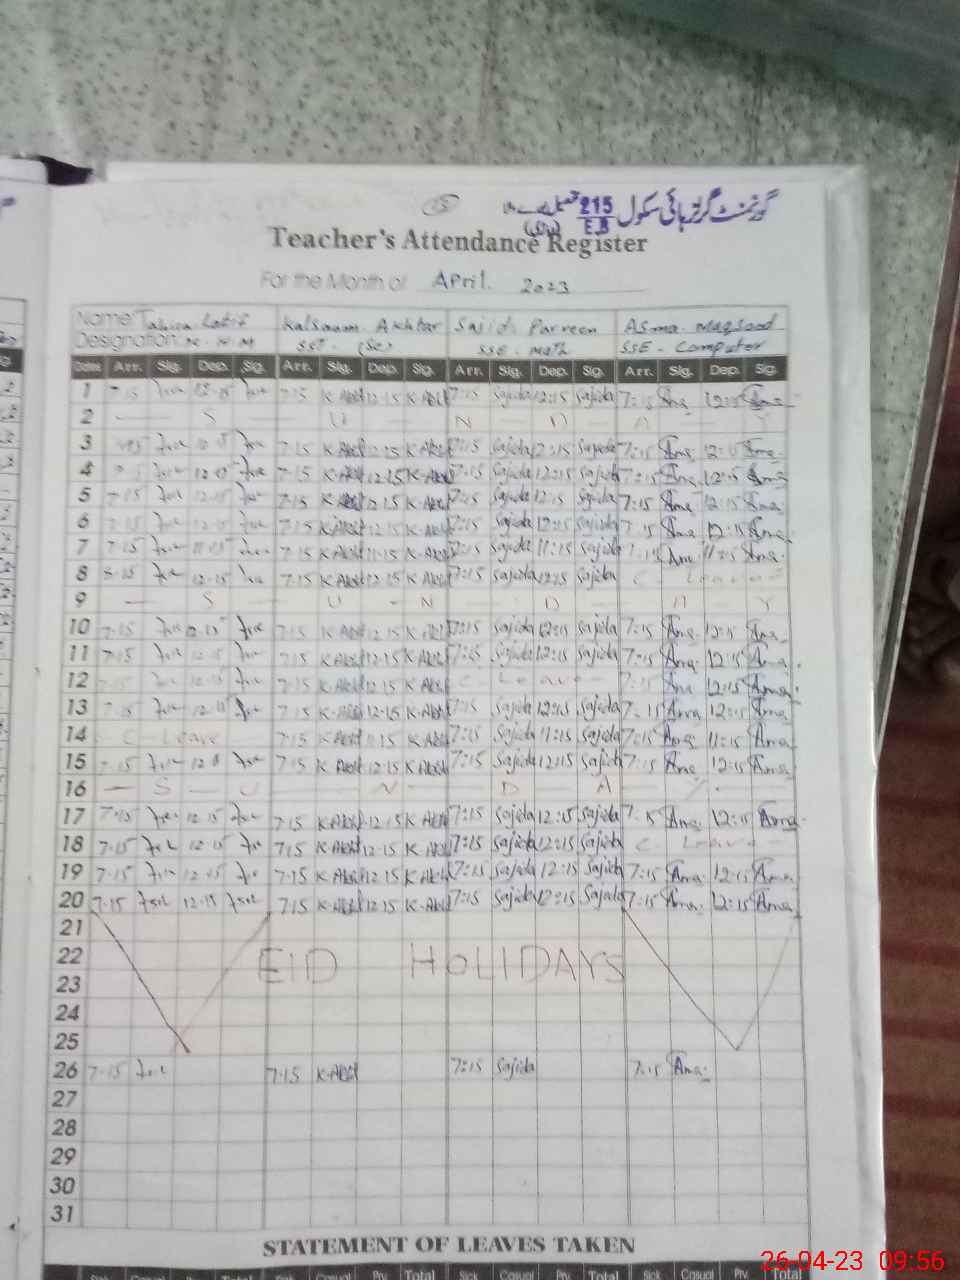 گورنمنٹ گرلز ہائی سکول 215 E.B
Teacher's Attendance Register
For the Month of April. 2023
Name Tahira Latif Kalsoom Akhtar Sajida Parveen Asma Maqsood
Designation SST (Sc) SSE - Math SSE - Computer
Dates Arr. Sig. Dep. Sig. Arr. Sig. Dep. Sig. Arr. Sig. Dep. Sig. Arr. Sig. Dep. Sig.
1 7-15 12-15 7.15 K-Akht 12.15 K-Akht 7:15 Sajida 12:15 Sajida 7:15 Asma 12:15 Asma
2 — S — U — N — D — A — Y
3 7.15 K-Akht 12.15 K-Akht 7:15 Sajida 12:15 Sajida 7:15 Asma 12:15 Asma
4 12-15 7.15 K-Akht 12.15 K-Akht 7:15 Sajida 12:15 Sajida 7:15 Asma 12:15 Asma
5 7-15 12-15 7.15 K-Akht 12.15 K-Akht 7:15 Sajida 12:15 Sajida 7:15 Asma 12:15 Asma
6 7-15 12-15 7.15 K-Akht 12.15 K-Akht 7:15 Sajida 12:15 Sajida 7:15 Asma 12:15 Asma
7 7-15 11-15 7.15 K-Akht 11-15 K-Akht 7:15 Sajida 11:15 Sajida 7:15 Asma 11:15 Asma
8 12-15 7.15 K-Akht 12.15 K-Akht 7:15 Sajida 12:15 Sajida C - Leave
9 — S — U — N — D — A — Y
10 7-15 12-15 7.15 K-Akht 12.15 K-Akht 7:15 Sajida 12:15 Sajida 7:15 Asma 12:15 Asma
11 7-15 12-15 7.15 K-Akht 12.15 K-Akht 7:15 Sajida 12:15 Sajida 7:15 Asma 12:15 Asma
12 7-15 12-15 7.15 K-Akht 12.15 K-Akht C - Leave 7:15 Asma 12:15 Asma
13 7-15 12-15 7.15 K-Akht 12.15 K-Akht 7:15 Sajida 12:15 Sajida 7:15 Asma 12:15 Asma
14 - C - Leave - 7.15 K-Akht 11.15 K-Akht 7:15 Sajida 11:15 Sajida 7:15 Asma 11:15 Asma
15 7-15 7.15 K-Akht 12.15 K-Akht 7:15 Sajida 12:15 Sajida 7:15 Asma 12:15 Asma
16 — S — U — N — D — A — Y
17 7-15 12-15 7.15 K-Akht 12.15 K-Akht 7:15 Sajida 12:15 Sajida 7:15 Asma 12:15 Asma
18 7-15 12-15 7.15 K-Akht 12.15 K-Akht 7:15 Sajida 12:15 Sajida C - Leave -
19 7-15 12-15 7.15 K-Akht 12.15 K-Akht 7:15 Sajida 12:15 Sajida 7:15 Asma 12:15 Asma
20 7-15 12-15 7.15 K-Akht 12.15 K-Akht 7:15 Sajida 12:15 Sajida 7:15 Asma 12:15 Asma
21
22 EID HOLIDAYS
23
24
25
26 7-15 7.15 K-Akht 7:15 Sajida 7:15 Asma
27
28
29
30
31
STATEMENT OF LEAVES TAKEN
Sick Casual Prv. Total Sick Casual Prv. Total Sick Casual Prv. Total Sick Casual Prv. Total
26-04-23 09:56